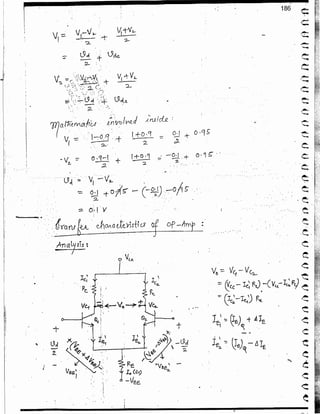 186
V₁ = (V₁-V₂)/2 + (V₁+V₂)/2
= Ud/2 + Udc
V₂ = (V₂-V₁)/2 + (V₁+V₂)/2
= -Ud/2 + Udc
Mathematics involved inside :
V₁ = (1-0.9)/2 + (1+0.9)/2 = 0.1/2 + 0.95
V₂ = (0.9-1)/2 + (1+0.9)/2 = -0.1/2 + 0.95
Ud = V₁ - V₂
= 0.1/2 + 0.95 - (-0.1/2) - 0.95
= 0.1 V
Transfer characteristics of OP-Amp :
Analysis :
Vcc
Ic₁' Ic₂'
Rc Rc
Vc₁ V₀ Vc₂
Q₁ Q₂
IE₁' IE₂'
Ud/2
-Ud/2
(VBE+ΔVBE)
VBE₁'
VBE₂'
RE
I₀ (Q)
-VEE
V₀ = Vc₁ - Vc₂
= (Vcc - Ic₁' Rc) - (Vcc - Ic₂' Rc)
IE₁' = (IE)Q + ΔIE
IE₂' = (IE)Q - ΔIE